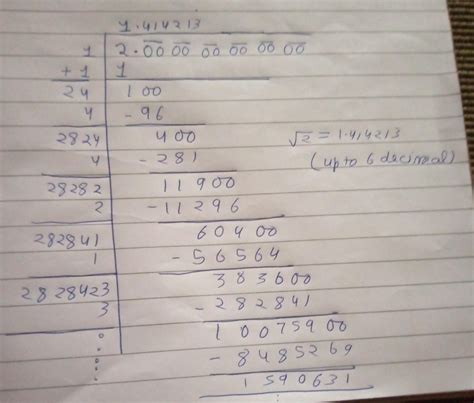 1.414213
1 2.00 00 00 00 00 00
+1 1
24 100
4 -96
2824 400
4 -281
28282 11900
2 -11296
282841 60400
1 -56564
2828423 383600
3 -282841
10075900
-8485269
1590631
√2 = 1.414213
(upto 6 decimal)